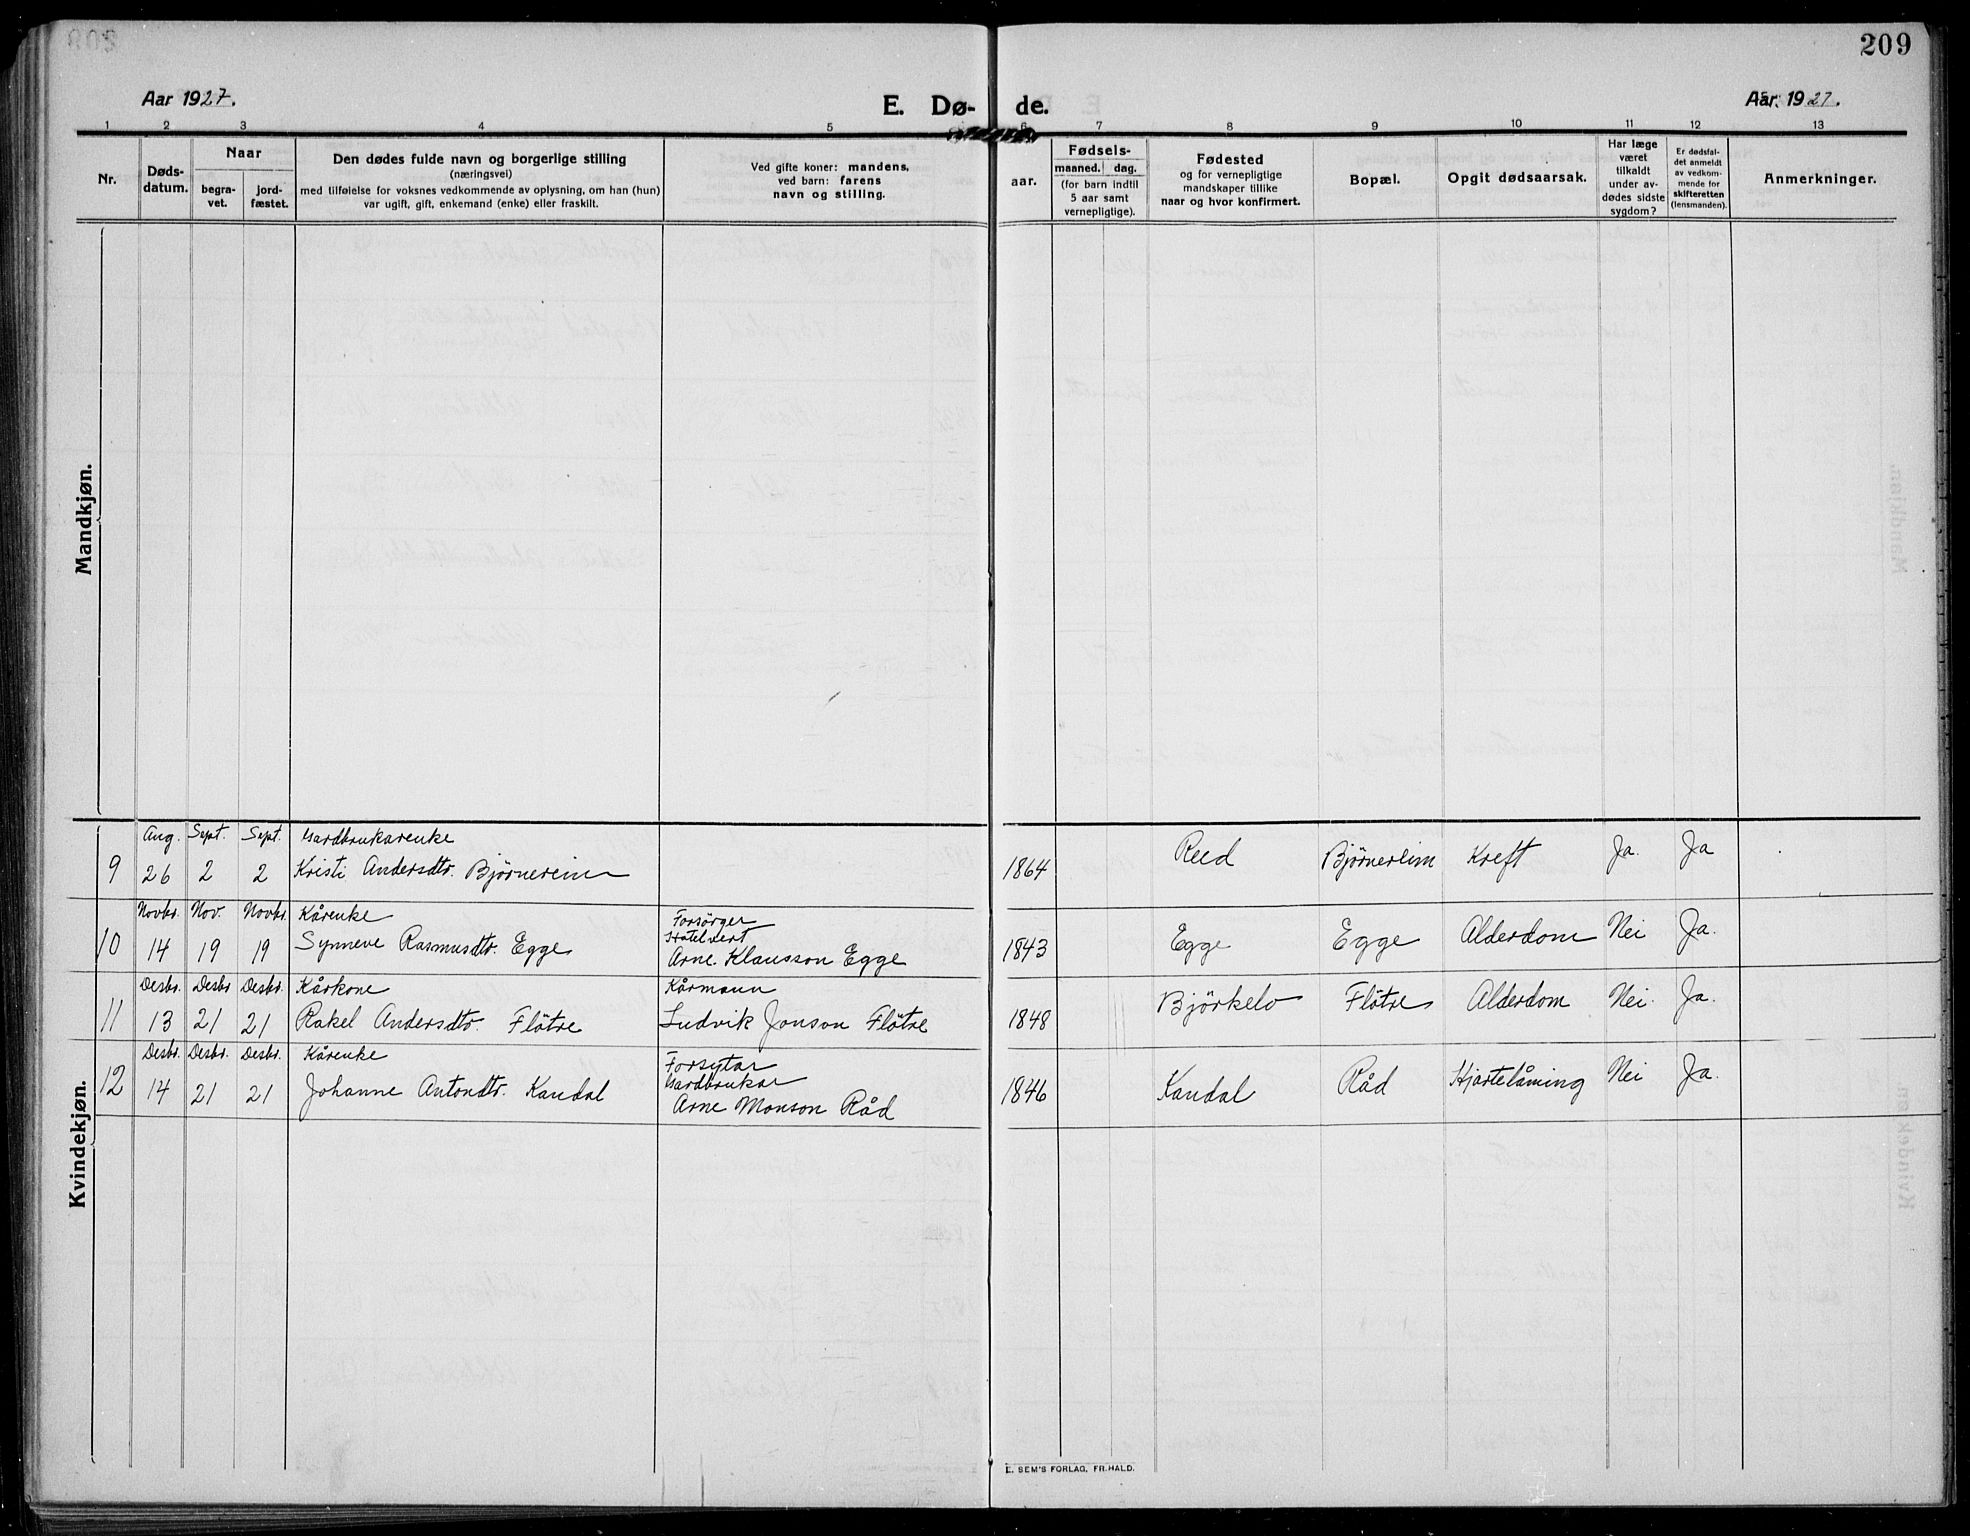 209
Aar 1927.
E. Dø- de.
Aar. 1927.
1 2 3 4 5 6 7 8 9 10 11 12 13
Nr.
Døds-
datum.
Naar
begra-
vet.
jord-
fæstet.
Den dødes fulde navn og borgerlige stilling
(næringsvei)
med tilføielse for voksnes vedkommende av oplysning, om han (hun)
var ugift, gift, enkemand (enke) eller fraskilt.
Ved gifte koner: mandens,
ved barn: farens
navn og stilling.
aar.
Fødsels-
maaned. dag.
(for barn indtil
5 aar samt
vernepligtige).
Fødested
og for vernepligtige
mandskaper tillike
naar og hvor konfirmert.
Bopæl.
Opgit dødsaarsak.
Har læge
været
tilkaldt
under av-
dødes sidste
sygdom?
Er dødsfal-
det anmeldt
av vedkom-
mende for
skifteretten
(lensmanden).
Anmerkninger.
Mandkjøn.
Kvindekjøn.
Aug. Sept. Sept. Gardbrukarenke
9 26 2 2 Kristi Andersdtr. Bjørnereim 1864 Reed Bjørnereim Kreft Ja. Ja
Novbr. Nov. Novbr. Kårenke Forsørger
Hotelvert
10 14 19 19 Synneve Rasmusdtr. Egge Arne Klausson Egge 1843 Egge Egge Alderdom Nei Ja.
Desbr. Desbr Desbr. Kårkone Kårmann
11 13 21 21 Rakel Andersdtr. Flötre Ludvik Jonson Flötre 1848 Björkelo Flötre Alderdom Nei. Ja.
Desbr. Desbr. Desbr. Kårenke Forsytar
Gardbrukar
12 14 21 21 Johanne Antondtr. Kandal Arne Monson Råd 1846 Kandal Råd Hjartelåming Nei Ja.
E. SEM'S FORLAG, FR.HALD.